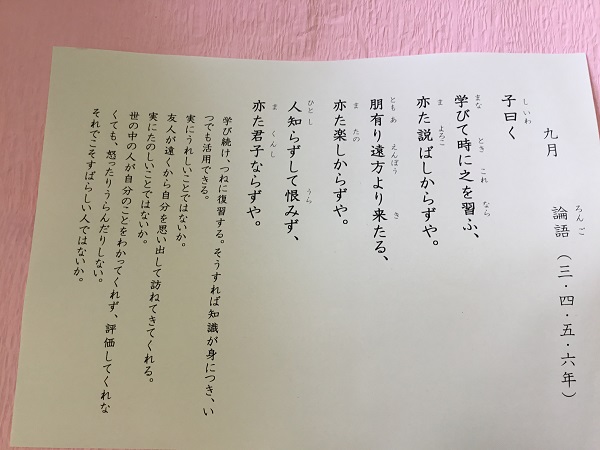 九月　論語（三・四・五・六年）
ろんご
子曰く
しいわ
学びて時に之を習ふ、
まな　とき　これ　なら
亦た説ばしからずや。
ま　よろこ
朋有り遠方より来たる、
とも　あ　えんぽう　き
亦た楽しからずや。
ま　たの
人知らずして恨みず、
ひとし　うら
亦た君子ならずや。
ま　くんし
学び続け、つねに復習する。そうすれば知識が身につき、い
つでも活用できる。
実にうれしいことではないか。
友人が遠くから自分を思い出して訪ねてきてくれる。
実にたのしいことではないか。
世の中の人が自分のことをわかってくれず、評価してくれな
くても、怒ったりうらんだりしない。
それでこそすばらしい人ではないか。